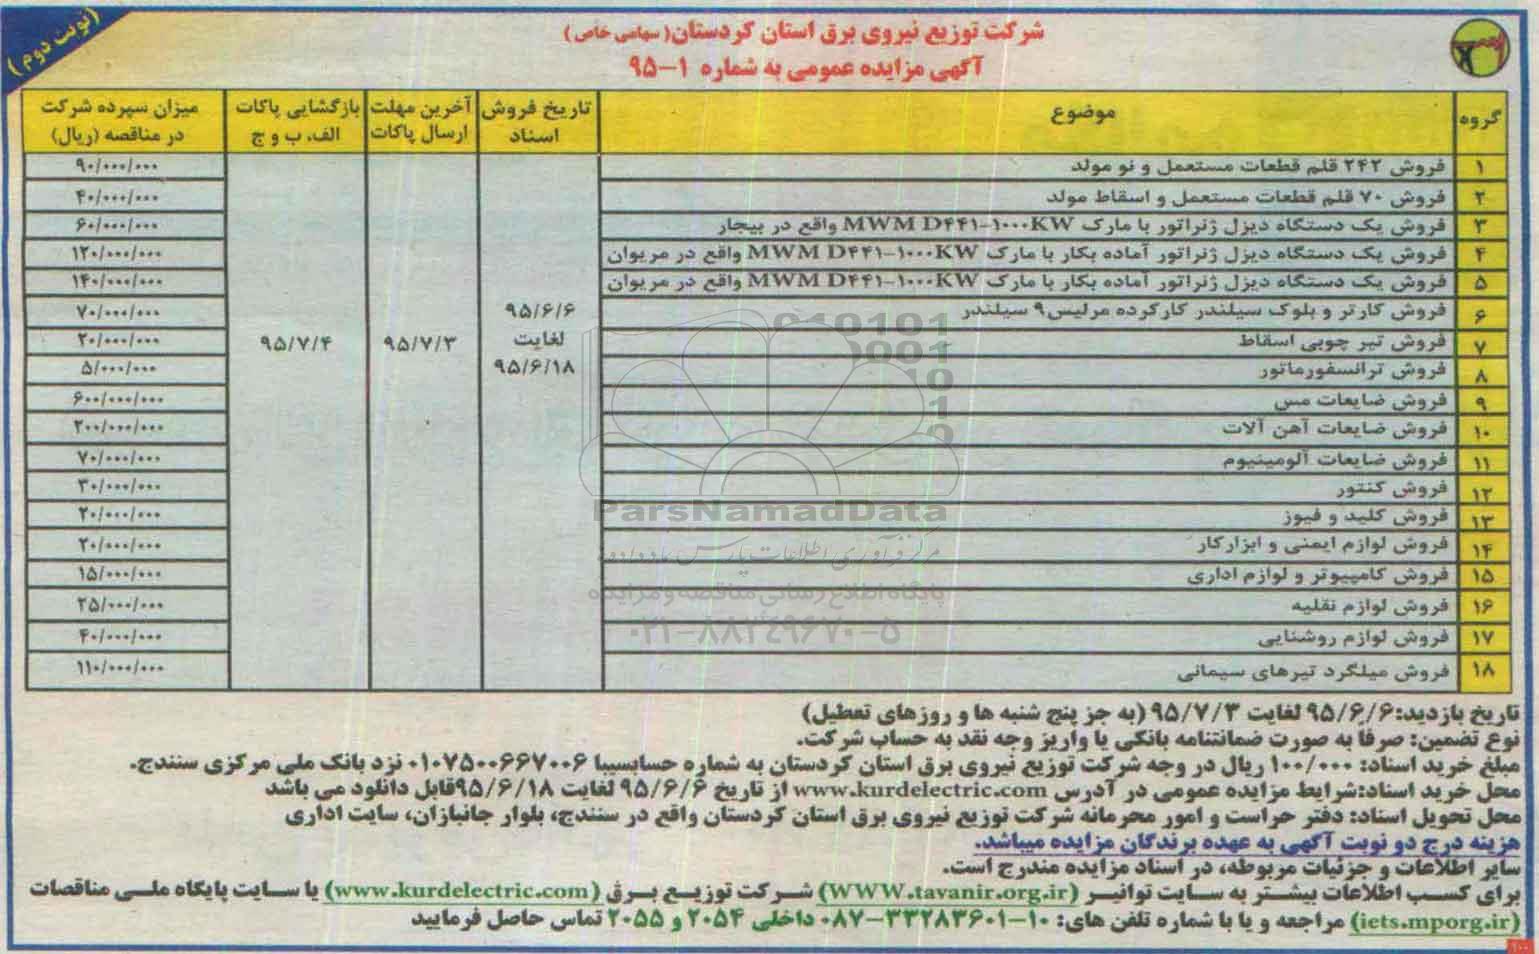 (نوبت دوم)
شرکت توزیع نیروی برق استان کردستان(سهامی خاص)
آگهی مزایده عمومی به شماره ۱-۹۵
گروه موضوع تاریخ فروش اسناد آخرین مهلت ارسال پاکات بازگشایی پاکات الف، ب و ج میزان سپرده شرکت در مناقصه (ریال)
۱ فروش ۲۴۲ قلم قطعات مستعمل و نو مولد ۹۰/۰۰۰/۰۰۰
۲ فروش ۷۰ قلم قطعات مستعمل و اسقاط مولد ۴۰/۰۰۰/۰۰۰
۳ فروش یک دستگاه دیزل ژنراتور با مارک MWM D۴۴۱-۱۰۰۰KW واقع در بیجار ۶۰/۰۰۰/۰۰۰
۴ فروش یک دستگاه دیزل ژنراتور آماده بکار با مارک MWM D۴۴۱-۱۰۰۰KW واقع در مریوان ۱۲۰/۰۰۰/۰۰۰
۵ فروش یک دستگاه دیزل ژنراتور آماده بکار با مارک MWM D۴۴۱-۱۰۰۰KW واقع در مریوان ۱۴۰/۰۰۰/۰۰۰
۶ فروش کارتر و بلوک سیلندر کارکرده مرلیس۹ سیلندر ۷۰/۰۰۰/۰۰۰
۷ فروش تیر چوبی اسقاط ۲۰/۰۰۰/۰۰۰
۸ فروش ترانسفورماتور ۵/۰۰۰/۰۰۰
۹ فروش ضایعات مس ۶۰۰/۰۰۰/۰۰۰
۱۰ فروش ضایعات آهن آلات ۲۰۰/۰۰۰/۰۰۰
۱۱ فروش ضایعات آلومینیوم ۷۰/۰۰۰/۰۰۰
۱۲ فروش کنتور ۳۰/۰۰۰/۰۰۰
۱۳ فروش کلید و فیوز ۲۰/۰۰۰/۰۰۰
۱۴ فروش لوازم ایمنی و ابزارکار ۲۰/۰۰۰/۰۰۰
۱۵ فروش کامپیوتر و لوازم اداری ۱۵/۰۰۰/۰۰۰
۱۶ فروش لوازم نقلیه ۲۵/۰۰۰/۰۰۰
۱۷ فروش لوازم روشنایی ۴۰/۰۰۰/۰۰۰
۱۸ فروش میلگرد تیرهای سیمانی ۱۱۰/۰۰۰/۰۰۰
۹۵/۶/۶
لغایت
۹۵/۶/۱۸
۹۵/۷/۳
۹۵/۷/۴
ParsNamadData
مرکز فرآوری اطلاعات پارس نماد داده ها
پایگاه اطلاع رسانی مناقصه و مزایده
۰۲۱-۸۸۳۴۹۶۷۰-۵
تاریخ بازدید:۹۵/۶/۶ لغایت ۹۵/۷/۳ (به جز پنج شنبه ها و روزهای تعطیل)
نوع تضمین: صرفا به صورت ضمانتنامه بانکی یا واریز وجه نقد به حساب شرکت.
مبلغ خرید اسناد: ۱۰۰/۰۰۰ ریال در وجه شرکت توزیع نیروی برق استان کردستان به شماره حسابسیبا ۰۱۰۷۵۰۰۶۶۷۰۰۶ نزد بانک ملی مرکزی سنندج.
محل خرید اسناد:شرایط مزایده عمومی در آدرس www.kurdelectric.com از تاریخ ۹۵/۶/۶ لغایت ۹۵/۶/۱۸قابل دانلود می باشد
محل تحویل اسناد: دفتر حراست و امور محرمانه شرکت توزیع نیروی برق استان کردستان واقع در سنندج، بلوار جانبازان، سایت اداری
هزینه درج دو نوبت آگهی به عهده برندگان مزایده میباشد.
سایر اطلاعات و جزئیات مربوطه، در اسناد مزایده مندرج است.
برای کسب اطلاعات بیشتر به سایت توانیر (WWW.tavanir.org.ir) شرکت توزیع برق (www.kurdelectric.com) یا سایت پایگاه ملی مناقصات
(iets.mporg.ir) مراجعه و یا با شماره تلفن های: ۱۰-۰۸۷-۳۳۲۸۳۶۰۱ داخلی ۲۰۵۴ و ۲۰۵۵ تماس حاصل فرمایید